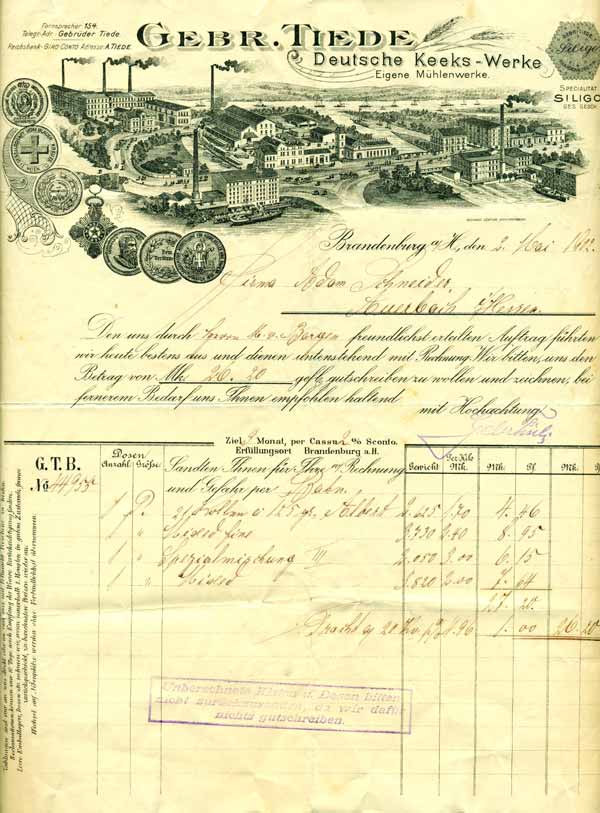 Fernsprecher 154.
Telegr.-Adr.: Gebrüder Tiede.
Reichsbank-GIRO CONTO Adresse: A. TIEDE.
GEBR. TIEDE
Deutsche Keeks-Werke
Eigene Mühlenwerke.
Siligo
SPECIALITÄT
SILIGO
GES. GESCH.
Brandenburg a/H., den 2. Mai
Firma Adam Schneider.
Auerbach Hessen.
Den uns durch Herrn M. v. Bergen freundlichst erteilten Auftrag führten
wir heute bestens aus und dienen untenstehend mit Rechnung. Wir bitten, uns den
Betrag von Mk. 26.20 gefl. gutschreiben zu wollen und zeichnen, bei
fernerem Bedarf uns Ihnen empfohlen haltend
mit Hochachtung
Ziel 3 Monat, per Cassa 2 % Sconto.
Erfüllungsort Brandenburg a.H.
G.T.B.
No
Dosen
Anzahl Größe
Sandten Ihnen für Ihre w/ Rechnung
und Gefahr per Bahn.
Gewicht
Per Kilo
Mk.
Mk. Pf. Mk. Pf.
1 P. 21 Rollen à 125 gr. Albert 2.625 1.70 4.46
1 " Mixed fine 3.730 2.40 8.95
1 " Spezialmischung III 2.050 3.00 6.15
1 " Mixed 3.820 2.00 7.64
27.20
1.00 26.20
Unberechnete Kisten u. Dosen bitten
nicht zurückzusenden, da wir dafür
nichts gutschreiben.